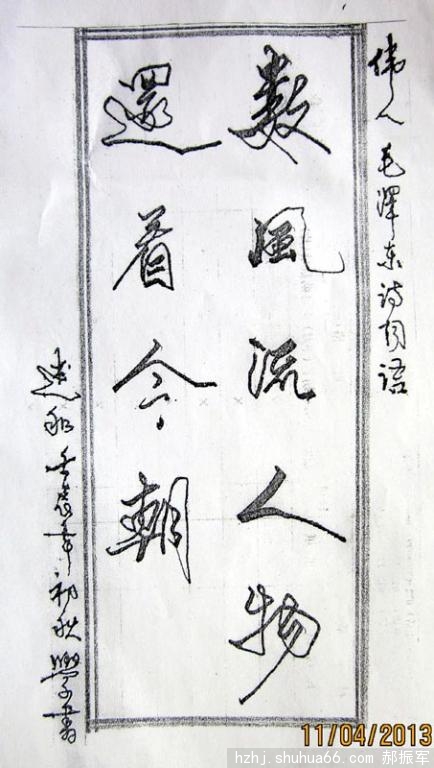 偉人毛澤东诗词语
數風流人物
還看今朝
壬辰年初秋學書
11/04/2013
hzhj.shuhua66.com 郝振军